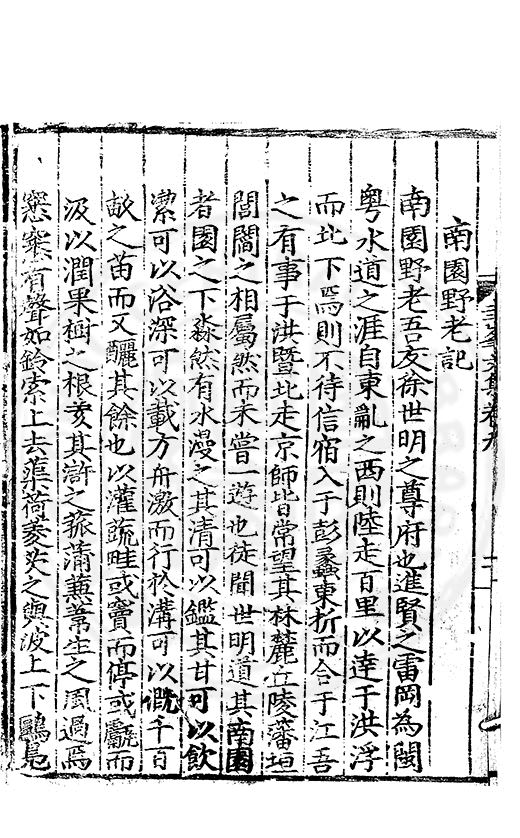 南園野老記
南園野老吾友徐世明之尊府也進賢之雷岡為閩
粤水道之涯自東亂之西則陸走百里以達于洪浮
而北下焉則不待信宿入于彭蠡東折而合于江吾
之有事于洪暨北走京師皆常望其林麓丘陵藩垣
閭閻之相屬然而未嘗一遊也徒聞世明道其南園
者園之下淼然有水漫之其清可以鑑其甘可以飲
潔可以浴深可以載方舟激而行於溝可以溉千百
畝之苗而又釃其餘也以灌蔬畦或竇而停或觱而
汲以潤果樹之根荄其滸之菰蒲蒹葦生之風過焉
窸窣有聲如鈴索上去蕖荷菱芡之與波上下鷗鳧